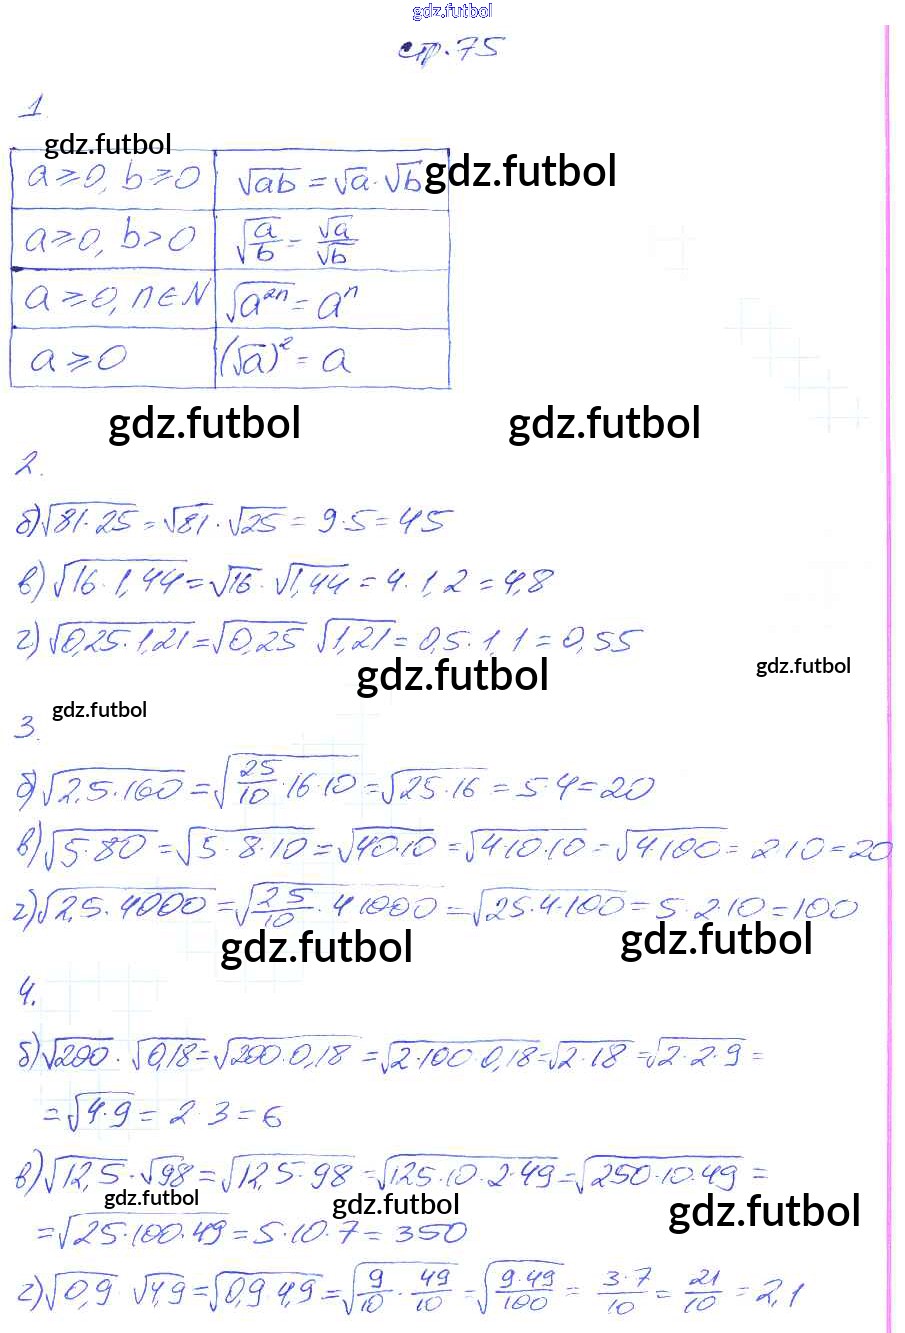 gdz.futbol
стр.75
1.
gdz.futbol
a ≥ 0, b ≥ 0 √ab = √a · √b gdz.futbol
a ≥ 0, b > 0 √(a/b) = √a/√b
a ≥ 0, n ∈ N √(a²ⁿ) = aⁿ
a ≥ 0 (√a)² = a
gdz.futbol gdz.futbol
2.
б) √(81·25) = √81 · √25 = 9·5 = 45
в) √(16·1,44) = √16 · √1,44 = 4·1,2 = 4,8
г) √(0,25·1,21) = √0,25 √1,21 = 0,5·1,1 = 0,55
gdz.futbol gdz.futbol
gdz.futbol
3.
б) √(2,5·160) = √(25/10·16·10) = √(25·16) = 5·4 = 20
в) √(5·80) = √(5·8·10) = √(40·10) = √(4·10·10) = √(4·100) = 2·10 = 20
г) √(2,5·4000) = √(25/10·4 1000) = √(25·4·100) = 5·2·10 = 100
gdz.futbol gdz.futbol
4.
б) √200 · √0,18 = √(200·0,18) = √(2·100·0,18) = √(2·18) = √(2·2·9) =
= √(4·9) = 2·3 = 6
в) √12,5 · √98 = √(12,5·98) = √(125·10·2·49) = √(250·10·49) =
gdz.futbol gdz.futbol gdz.futbol
= √(25·100·49) = 5·10·7 = 350
г) √0,9 · √4,9 = √(0,9·4,9) = √(9/10·49/10) = √(9·49/100) = 3·7/10 = 21/10 = 2,1